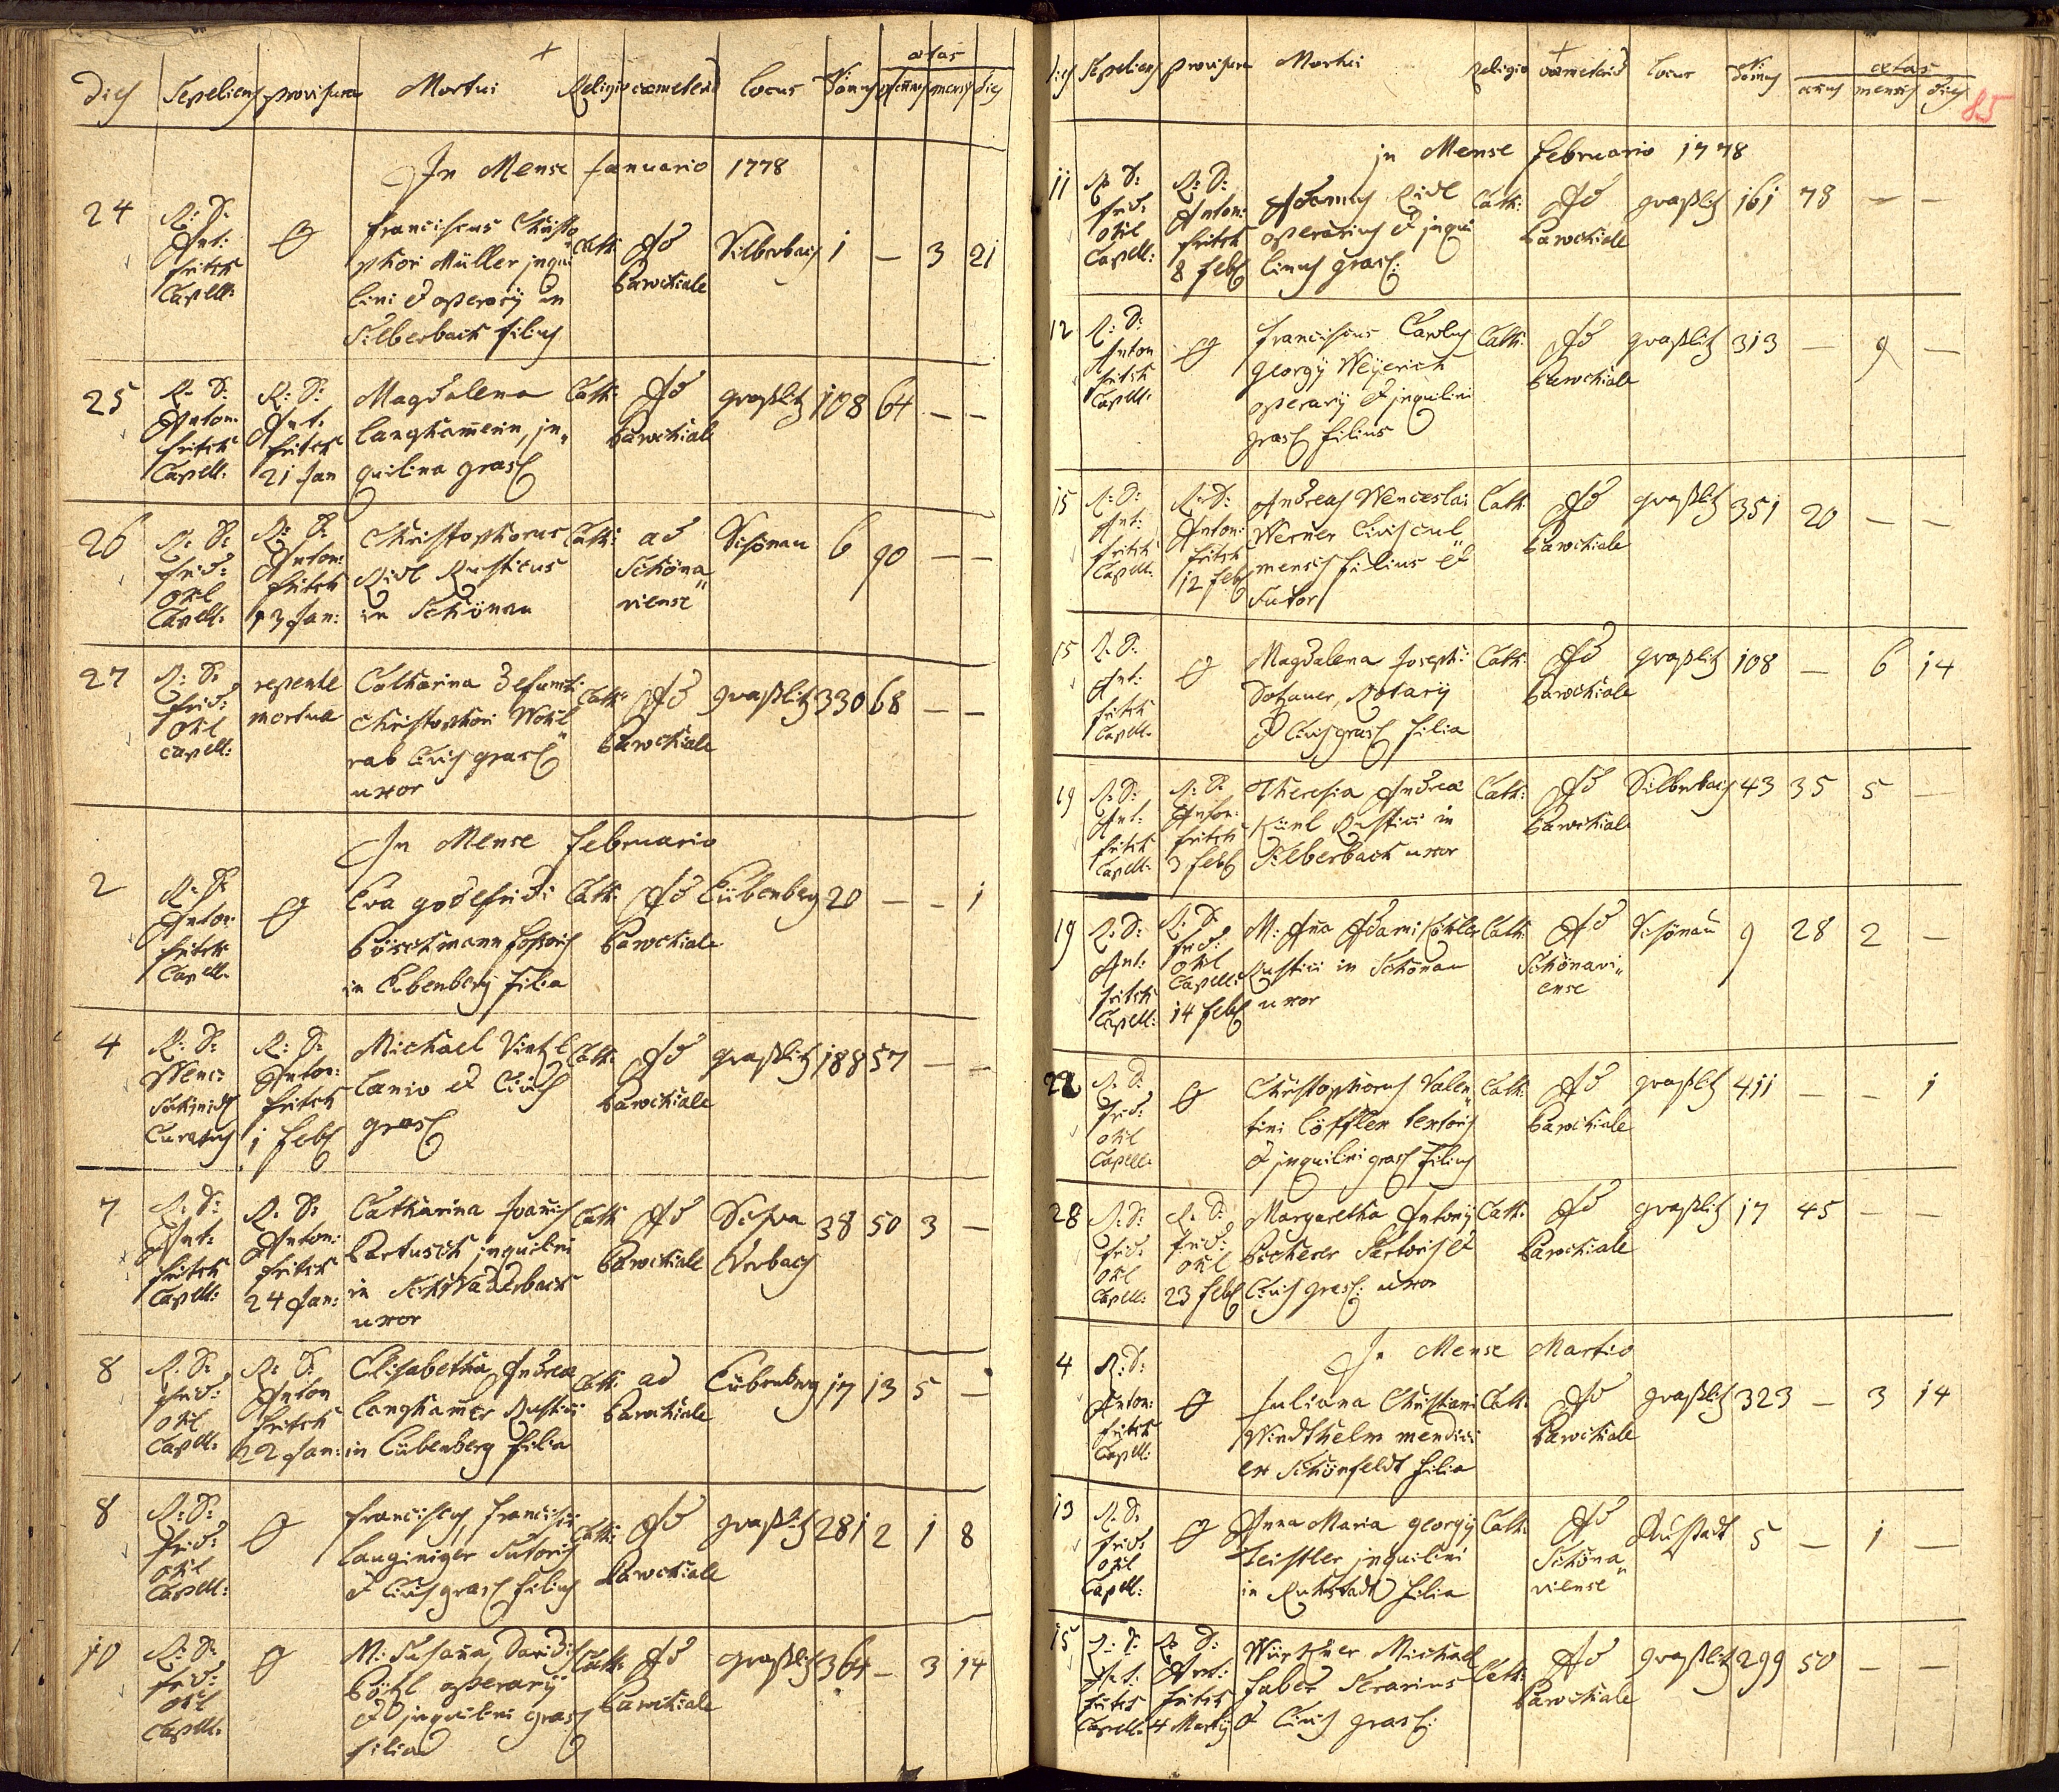 dies Sepeliens provisura Mortui Religio cœmeteriũ Locus Nr̃: domus ætas annus mensis dies
In Mense Januario 1778
24 R: D: Ant: Fritsch Capell: Ø Franciscus Christo
phori Müller inqui
lini et operarij in
Silberbach filius Cath: Ad Parochiale Silberbach 1 — 3 21
25 R: D: Anton: Fritsch Capell: R: D: Ant: Fritsch 21 Jan Magdalena
Langhamerin, in„
quilina grasl Cath: Ad Parochiale graßlitz 108 64 — —
26 R: D: Frid: Ohl Capell: R: D: Anton: Fritsch 13 Jan: Christophorus
Ridl Rusticus
in Schönau Cath: ad Schöna„
viense Schönau 6 90 — —
27 R: D: Frid: Ohl Capell: repente mortua Catharina defuncti
Christophori Wohl„
rab Civis grasl
uxor Cath: Ad Parochiale graßlitz 330 68 — —
In Mense Februario
2 R: D: Anton: Fritsch Capell: Ø Eva godefridi
Pöschmann fossoris
in Eibenberg filia Cath: Ad Parochiale Eübenberg 20 — — 1
4 R: D: Wenc: Schmidt Curatus R: D: Anton: Fritsch 1 feb Michael Vietzl
Lanio et Civis
grasl Cath: Ad Parochiale graßlitz 188 57 — —
7 R: D: Ant: Fritsch Capell: R: D: Anton: Fritsch 24 Jan: Catharina Joañis
Bartusch inquilini
in Schwaderbach
uxor Cath: Ad Parochiale Schwa
derbach 38 50 3 —
8 R: D: Frid: Ohl Capell: R: D: Anton Fritsch 22 Jan: Elisabetha Andreæ
Langhamer Rustici
in Eübenberg filia Cath: ad Parochiale Eübenberg 17 13 5 —
8 R: D: Frid: Ohl Capell: Ø Franciscus, Francisci
Langiniger Sutoris
et Civis grasl filius Cath: Ad Parochiale graßlitz 281 2 1 8
10 R: D: Frid: Ohl Capell: Ø M: Susaña, Davidis
Pöhl operarij
et inquilini grasl
filia Cath: Ad Parochiale graßlitz 364 — 3 14
dies Sepeliens provisura Mortui Religio cœmeteriũ Locus Nr̃: domus ætas annus mensis dies
85
in Mense Februario 1778
11 R: D: Frid: Ohl Capell: R: D: Anton: Fritsch 8 feb Adamus Ridl
operarius et inqui
linus grasl: Cath: Ad Parochiale graßlitz 161 78 — —
12 R: D: Anton Fritsch Capell: Ø Franciscus Carolus
Georgij Weyerich
operarij et inquilini
grasl filius Cath: Ad Parochiale graßlitz 313 — 9 —
15 R: D: Ant: Fritsch Capell: R: D: Anton: Fritsch 12 feb Andreas Wenceslai
Werner Civis cul„
mensis filius et
Sutor Cath: Ad Parochiale graßlitz 351 20 — —
15 R: D: Ant: Fritsch Capell: Ø Magdalena Joseph:
Dotzauer, Rotarij
et Civis grasl filia Cath: Ad Parochiale graßlitz 108 — 6 14
19 R: D: Ant: Fritsch Capell: R: D: Anton: Fritsch 3 feb Theresia Andreæ
Künl Rustici in
Silberbach uxor Cath: Ad Parochiale Silberbach 43 35 5 —
19 R: D: Ant: Fritsch Capell: R: D: Frid: Ohl Capell: 14 feb M: Aña Adami Köhler
Rustici in Schönau
uxor Cath: Ad Schönavi„
ense Schönau 9 28 2 —
22 R: D: Frid: Ohl Capell: Ø Christophorus Valen„
tini Löffler textoris
et inquilini grasl filius Cath: Ad Parochiale graßlitz 411 — — 1
28 R: D: Frid: Ohl Capell: R: D: Frid: Ohl 23 feb Margaretha Antonij
Pecherer Sartoris et
Civis grasl: uxor Cath: Ad Parochiale graßlitz 17 45 — —
In Mense Martio
4 R: D: Anton: Fritsch Capell: Ø Juliana Christiani
Windthelm mendici
ex Schönfeldt filia Cath: Ad Parochiale graßlitz 323 — 3 14
13 R: D: Frid: Ohl Capell: Ø Anna Maria Georgij
Zeistler inquilini
in Ruhstadt filia Cath: Ad Schöna„
viense Ruhstadt 5 — 1 —
15 R: D: Ant: Fritsch Capell: R: D: Ant: Fritsch 4 Martij Michael
Faber Serarius
et Civis grasl: Cath: Ad Parochiale graßlitz 299 50 — —